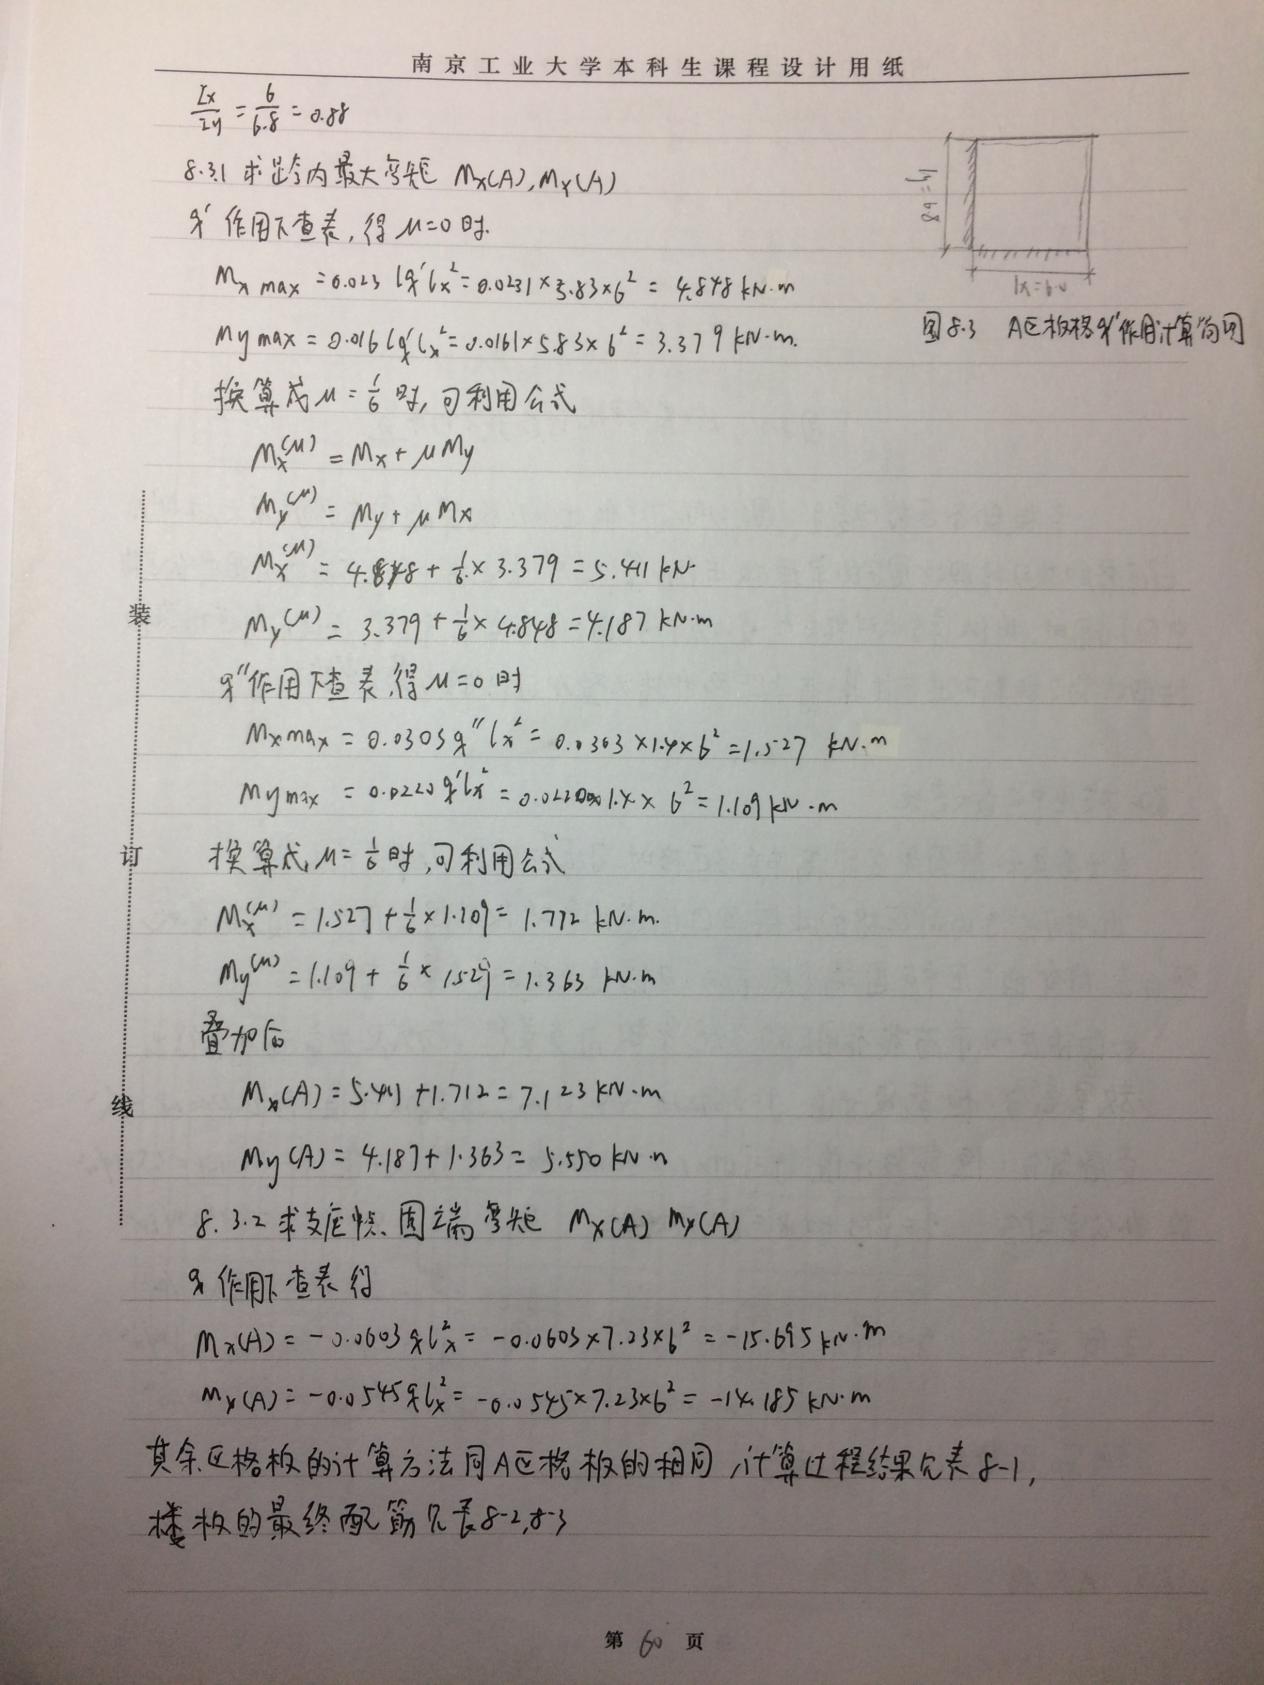 南京工业大学本科生课程设计用纸
lx/ly = 6/6.8 = 0.88
8.3.1 求跨内最大弯矩 Mx(A), My(A)
q' 作用下查表, 得 μ=0 时.
Mx max = 0.0231q'lx² = 0.0231×5.83×6² = 4.848 kN·m
My max = 0.0161q'lx² = 0.0161×5.83×6² = 3.379 kN·m.
换算成 μ = 1/6 时, 可利用公式
Mx(μ) = Mx + μMy
My(μ) = My + μMx
Mx(μ) = 4.848 + 1/6 × 3.379 = 5.411 kN·
My(μ) = 3.379 + 1/6 × 4.848 = 4.187 kN·m
q''作用下查表,得 μ=0 时
Mx max = 0.0303q''lx² = 0.0303×1.4×6² = 1.527 kN·m
My max = 0.0220q''lx² = 0.0220×1.4×6² = 1.109 kN·m
换算成 μ = 1/6 时,可利用公式
Mx(μ) = 1.527 + 1/6 × 1.109 = 1.712 kN·m.
My(μ) = 1.109 + 1/6 × 1.527 = 1.363 kN·m
叠加后
Mx(A) = 5.411 + 1.712 = 7.123 kN·m
My(A) = 4.187 + 1.363 = 5.550 kN·m
8.3.2 求支座 固端弯矩 Mx(A) My(A)
q 作用下查表得
Mx(A) = -0.0603qlx² = -0.0603×7.23×6² = -15.695 kN·m
My(A) = -0.0545qlx² = -0.0545×7.23×6² = -14.185 kN·m
其余区格板的计算方法同A区格板的相同,计算过程结果见表8-1,
楼板的最终配筋见表8-2,8-3
ly=6.8
lx=6.0
图8.3 A区板格q''作用计算简图
装
订
线
第 60 页